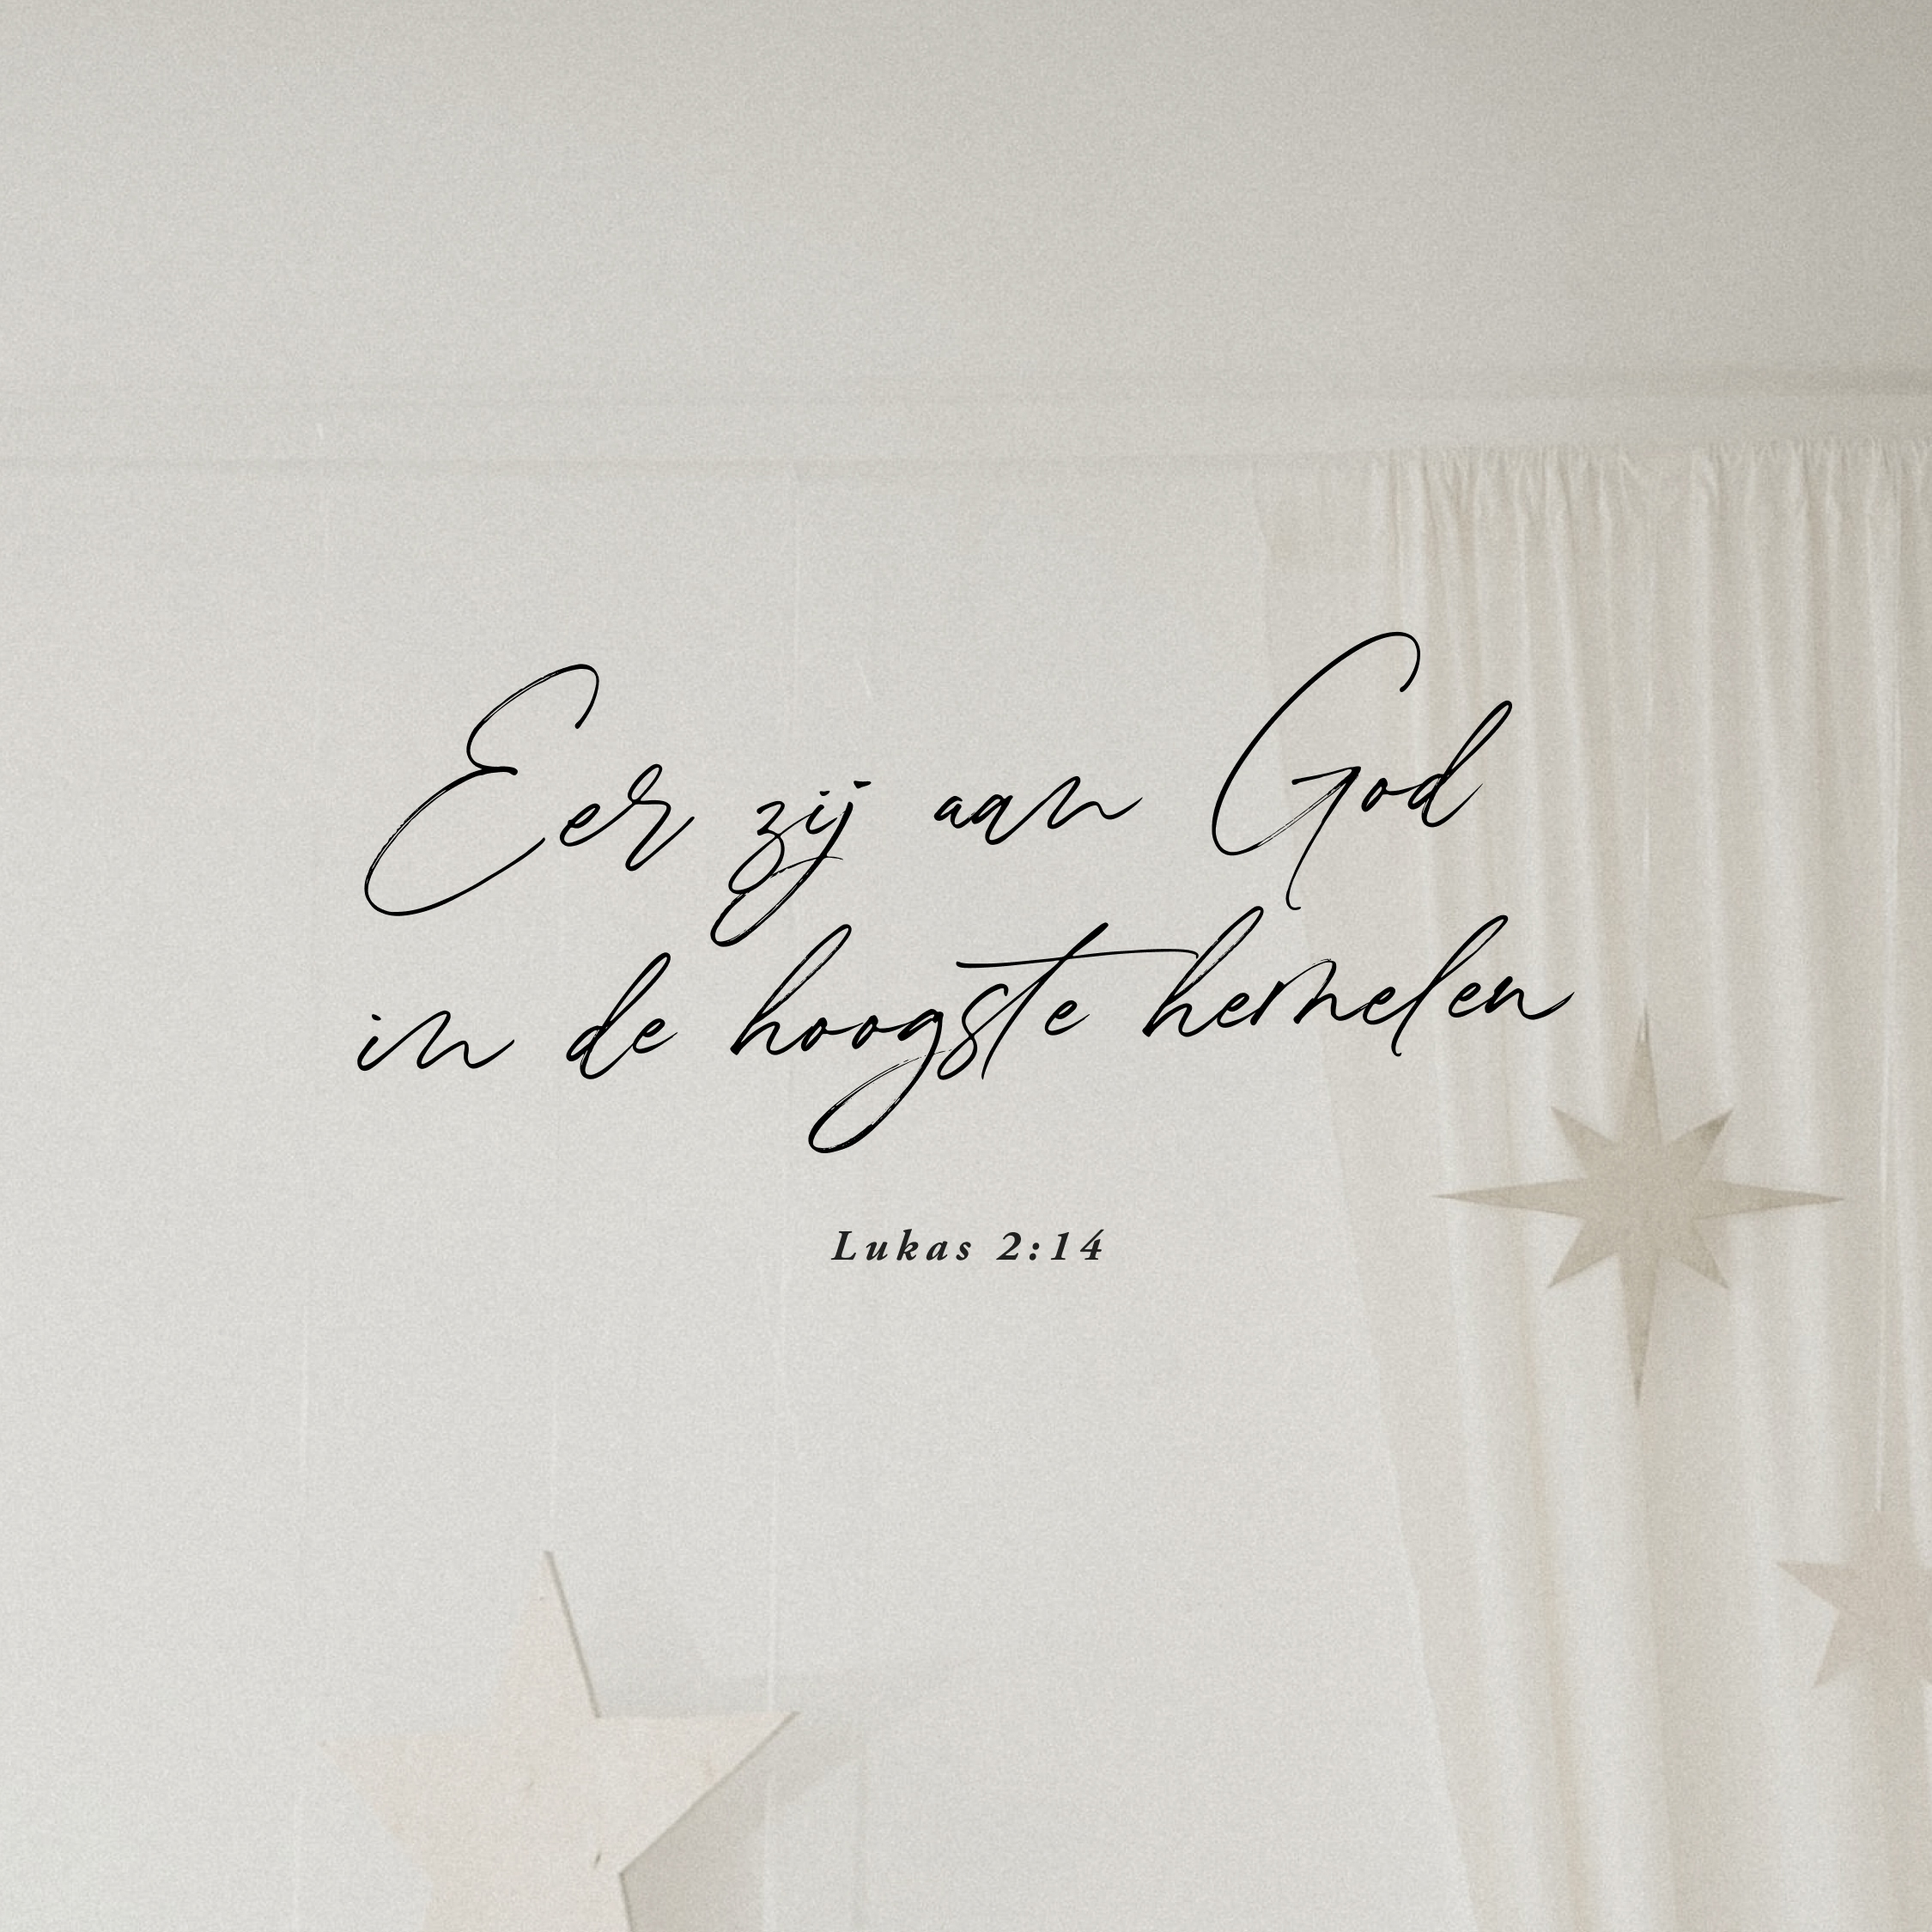 Eer zij aan God
in de hoogste hemelen
Lukas 2:14